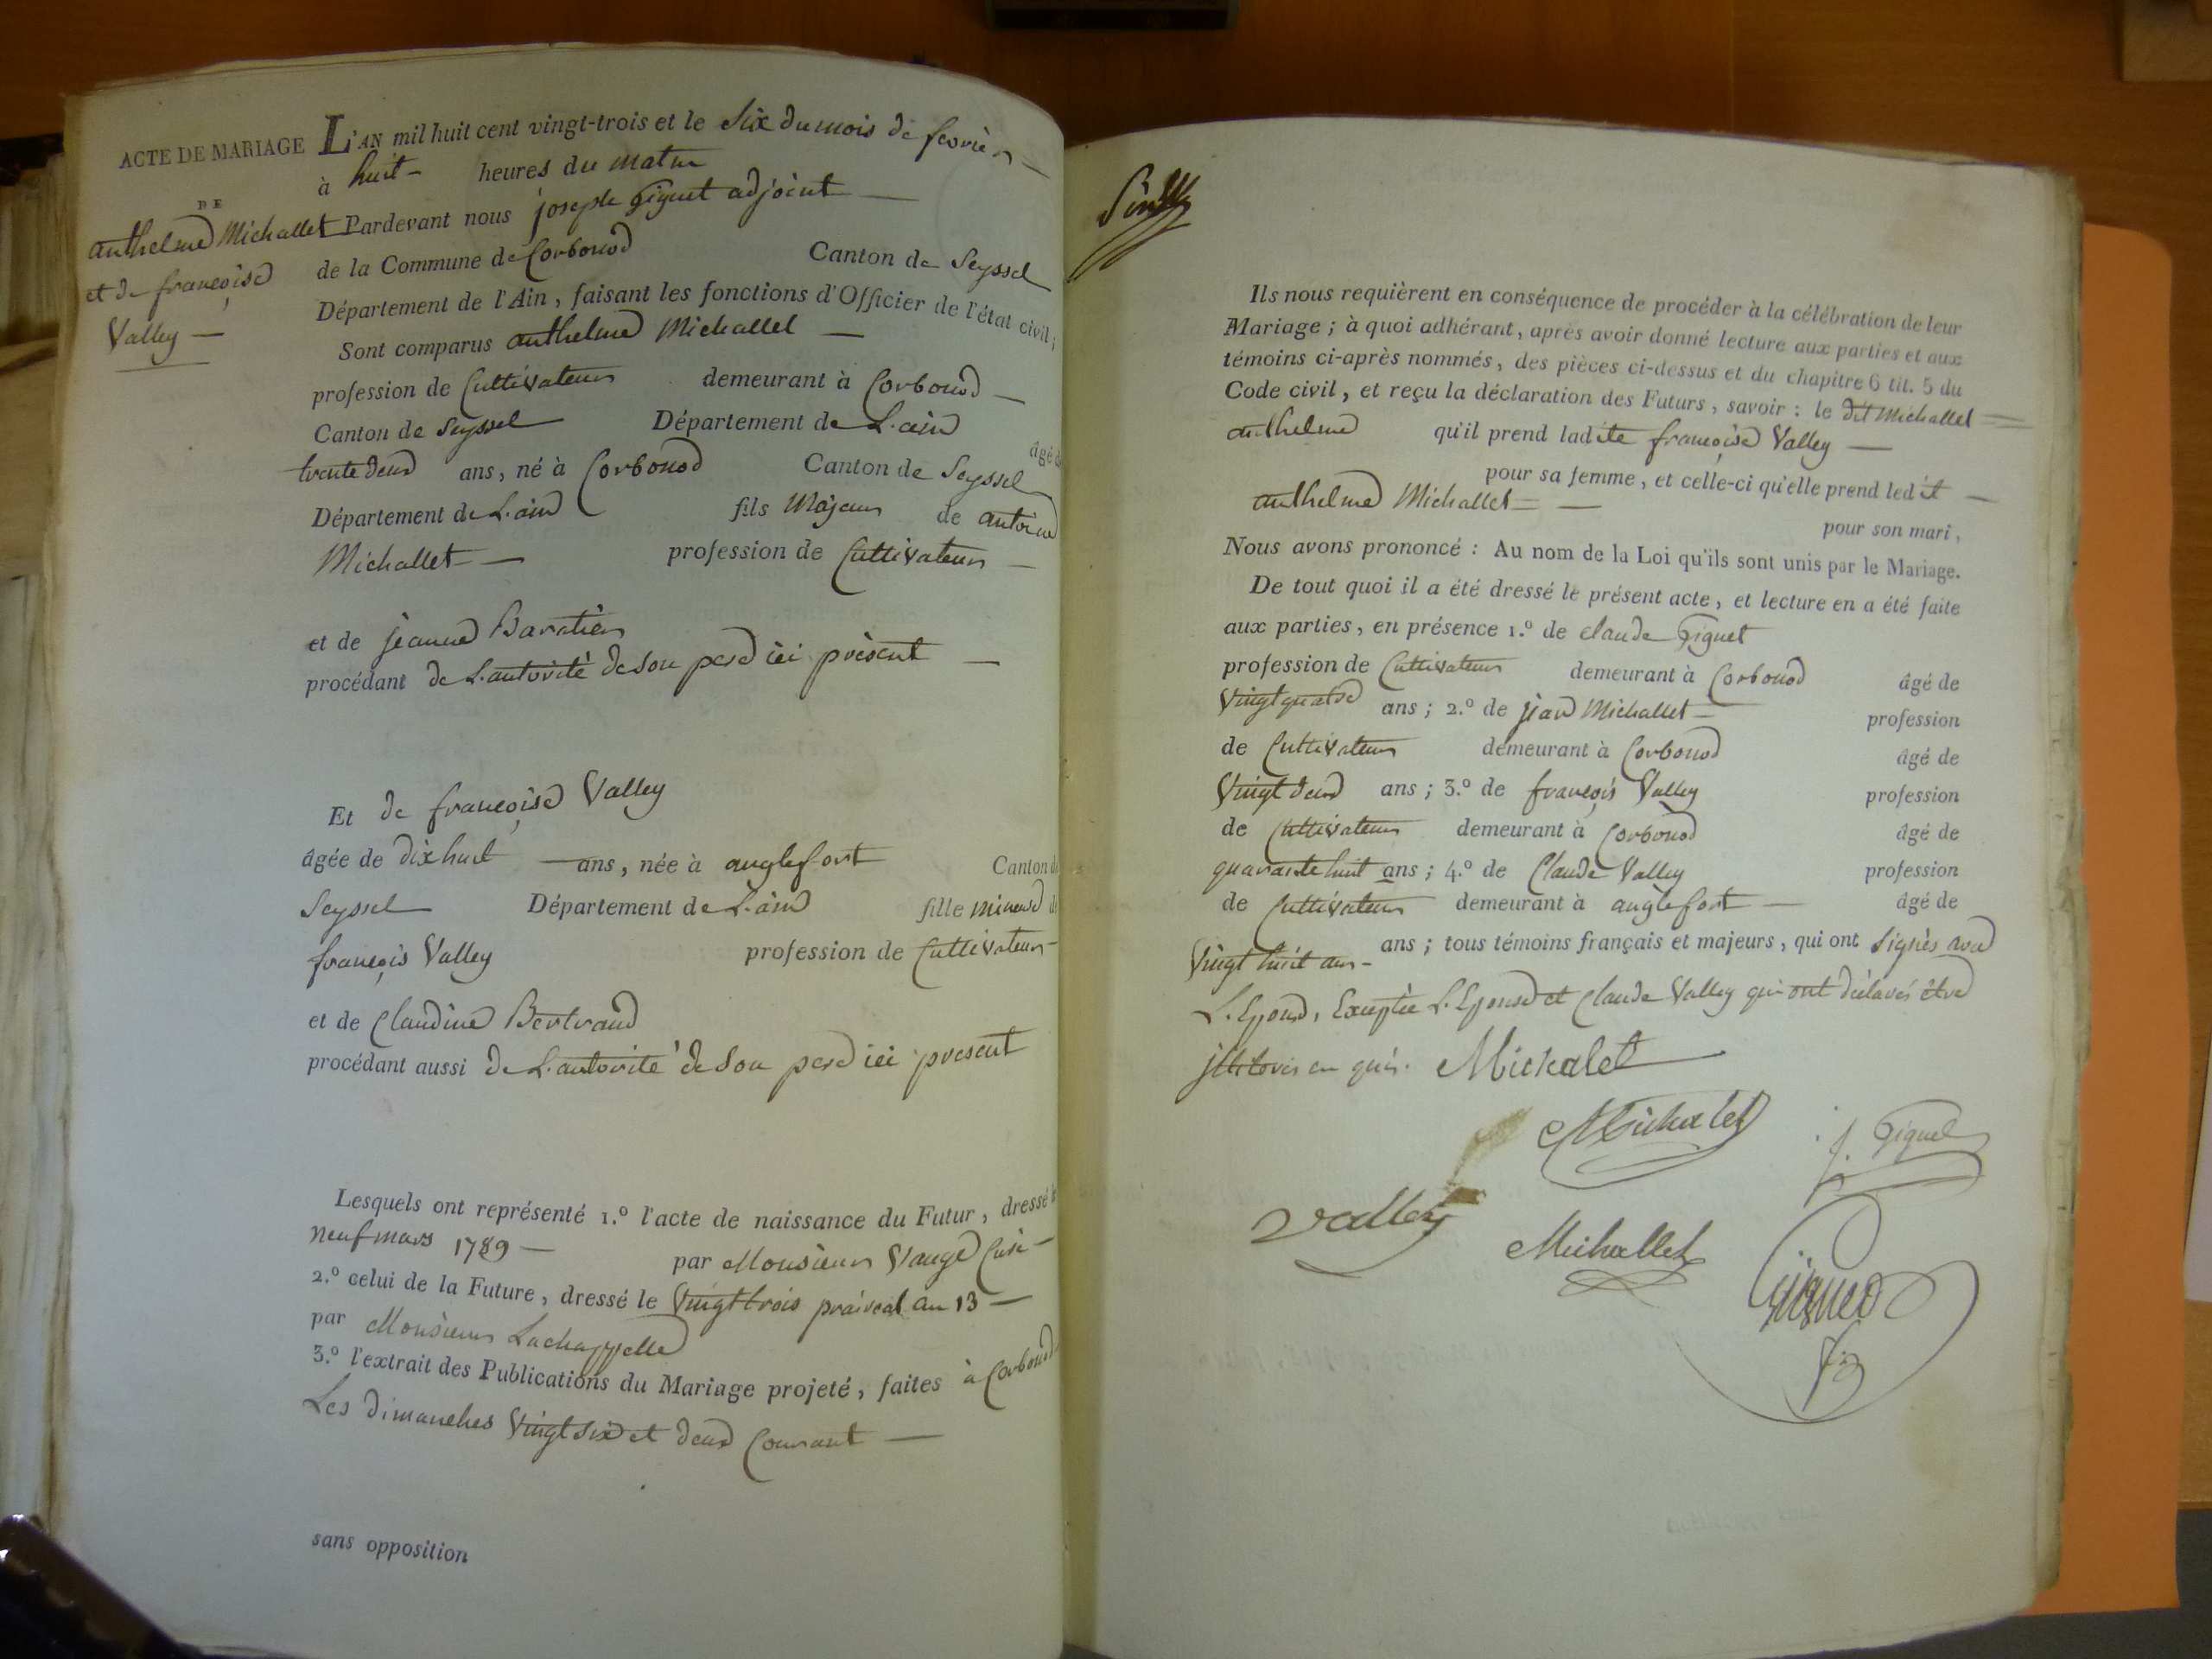 ACTE DE MARIAGE
DE
anthelme Michallet
et de françoise
Valley —
L'AN mil huit cent vingt-trois et le Six du mois de fevrier —
à huit — heures du matin
Pardevant nous joseph Giguet adjoint —
de la Commune de Corbonod Canton de Seyssel
Département de l'Ain, faisant les fonctions d'Officier de l'état civil ;
Sont comparus anthelme Michallet —
profession de Cultivateur demeurant à Corbonod —
Canton de Seyssel Département de L'ain âgé de
trente deux ans, né à Corbonod Canton de Seyssel
Département de L'ain fils Majeur de antoine
Michallet — profession de Cultivateur —
et de jeanne Baratier
procédant de L'autorité de son pere ici présent —
Et de françoise Valley
âgée de dix huit — ans, née à anglefort Canton de
Seyssel Département de L'ain fille mineure de
françois Valley profession de Cultivateur —
et de Claudine Bertrand
procédant aussi de L'autorité de son pere ici present
Lesquels ont représenté 1.º l'acte de naissance du Futur, dressé le
neuf mars 1789 — par Monsieur Vauge Curé —
2.º celui de la Future, dressé le Vingt trois praireal an 13 —
par Monsieur Lachappelle
3.º l'extrait des Publications du Mariage projeté, faites à Corbonod
Les dimanches Vingt six et deux Courant —
sans opposition
Ils nous requièrent en conséquence de procéder à la célébration de leur
Mariage ; à quoi adhérant, après avoir donné lecture aux parties et aux
témoins ci-après nommés, des pièces ci-dessus et du chapitre 6 tit. 5 du
Code civil, et reçu la déclaration des Futurs, savoir : le dit Michallet
anthelme qu'il prend ladite françoise Valley —
pour sa femme, et celle-ci qu'elle prend ledit —
anthelme Michallet — pour son mari,
Nous avons prononcé : Au nom de la Loi qu'ils sont unis par le Mariage.
De tout quoi il a été dressé le présent acte, et lecture en a été faite
aux parties, en présence 1.º de claude Giguet
profession de Cultivateur demeurant à Corbonod âgé de
Vingt quatre ans ; 2.º de jean Michallet — profession
de Cultivateur demeurant à Corbonod âgé de
Vingt deux ans ; 3.º de françois Valley profession
de Cultivateur demeurant à Corbonod âgé de
quarante huit ans ; 4.º de Claude Valley profession
de Cultivateur demeurant à anglefort — âgé de
Vingt huit ans — ans ; tous témoins français et majeurs, qui ont signés avec
L'Epoux, Exceptée L'Epouse et Claude Valley qui ont déclarés être
jllitérés en quis. Michalet
Michalet
J. Giguet
Valley
Michallet
Giguet